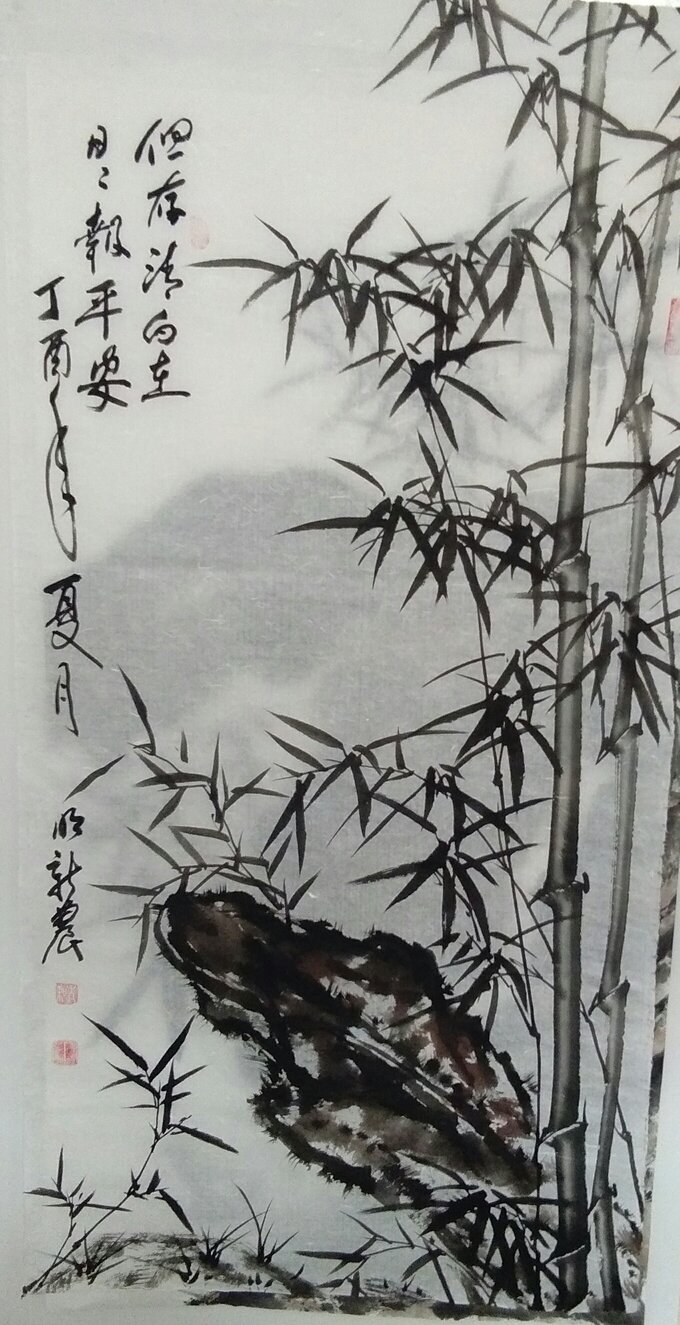 但存清白在
日〻報平安
丁酉年夏月
新農